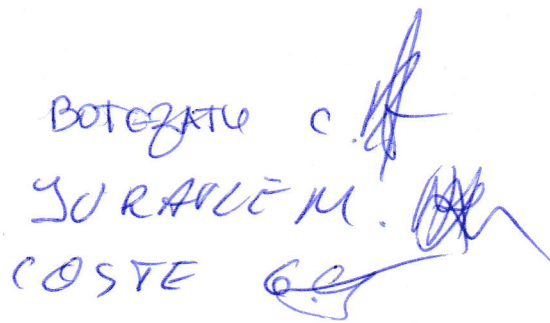 BOTEZATU C.
JURAVLE M.
COSTE G.